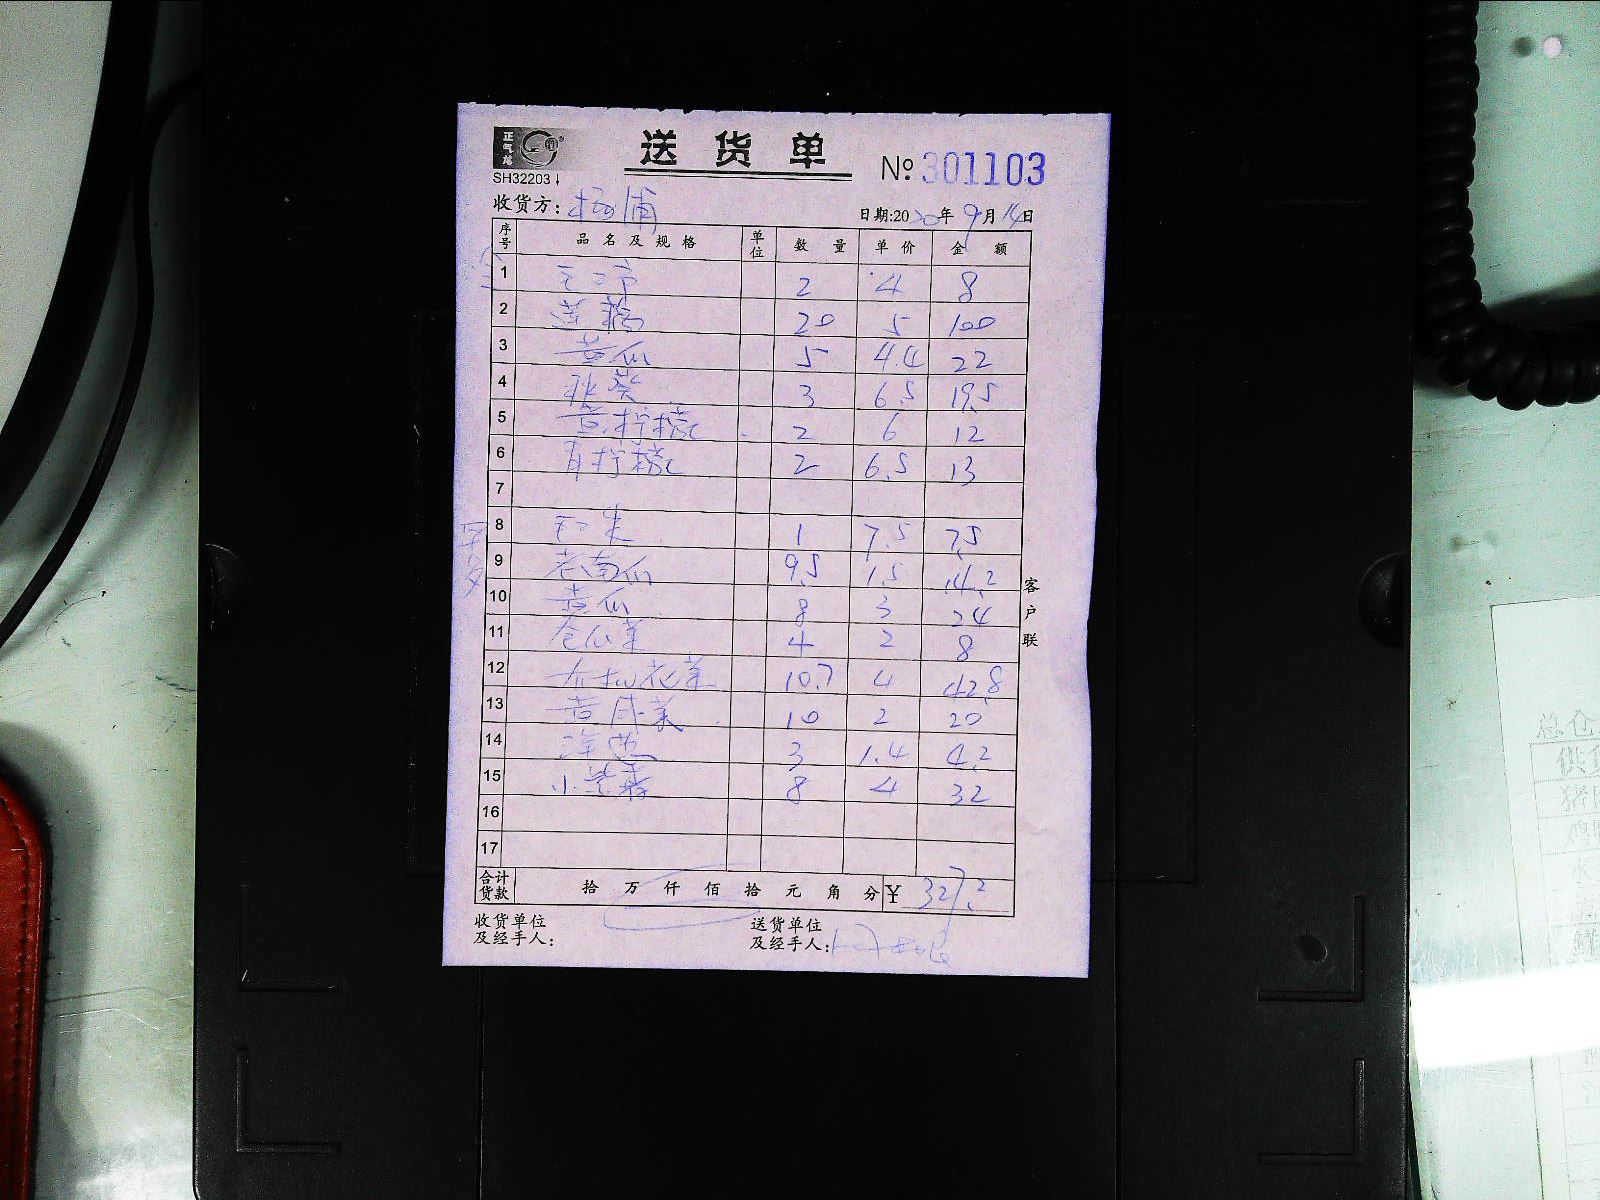 正气龙
送货单
№ 301103
SH32203
收货方: 杨浦
日期:2020年9月14日
序号 品名及规格 单位 数量 单价 金额
1 2 4 8
2 莲藕 20 5 100
3 黄瓜 5 4.4 22
4 秋葵 3 6.5 19.5
5 黄柠檬 2 6 12
6 青柠檬 2 6.5 13
7
8 玉米 1 7.5 7.5
9 老南瓜 9.5 1.5 14.2
10 黄瓜 8 3 24
11 4 2 8
12 花菜 10.7 4 42.8
13 10 2 20
14 洋葱 3 1.4 4.2
15 小 8 4 32
16
17
合计货款 拾 万 仟 佰 拾 元 角 分 ¥ 327.2
收货单位及经手人:
送货单位及经手人:
客户联
总仓